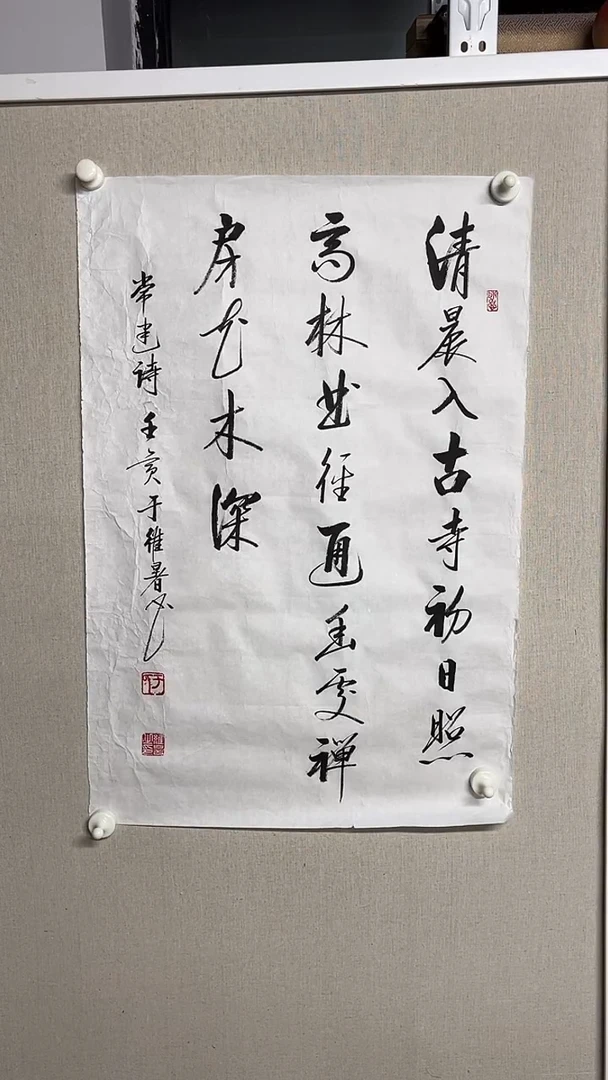 清晨入古寺初日照
高林曲徑通幽處禪
房花木深
常建詩壬寅于維暑